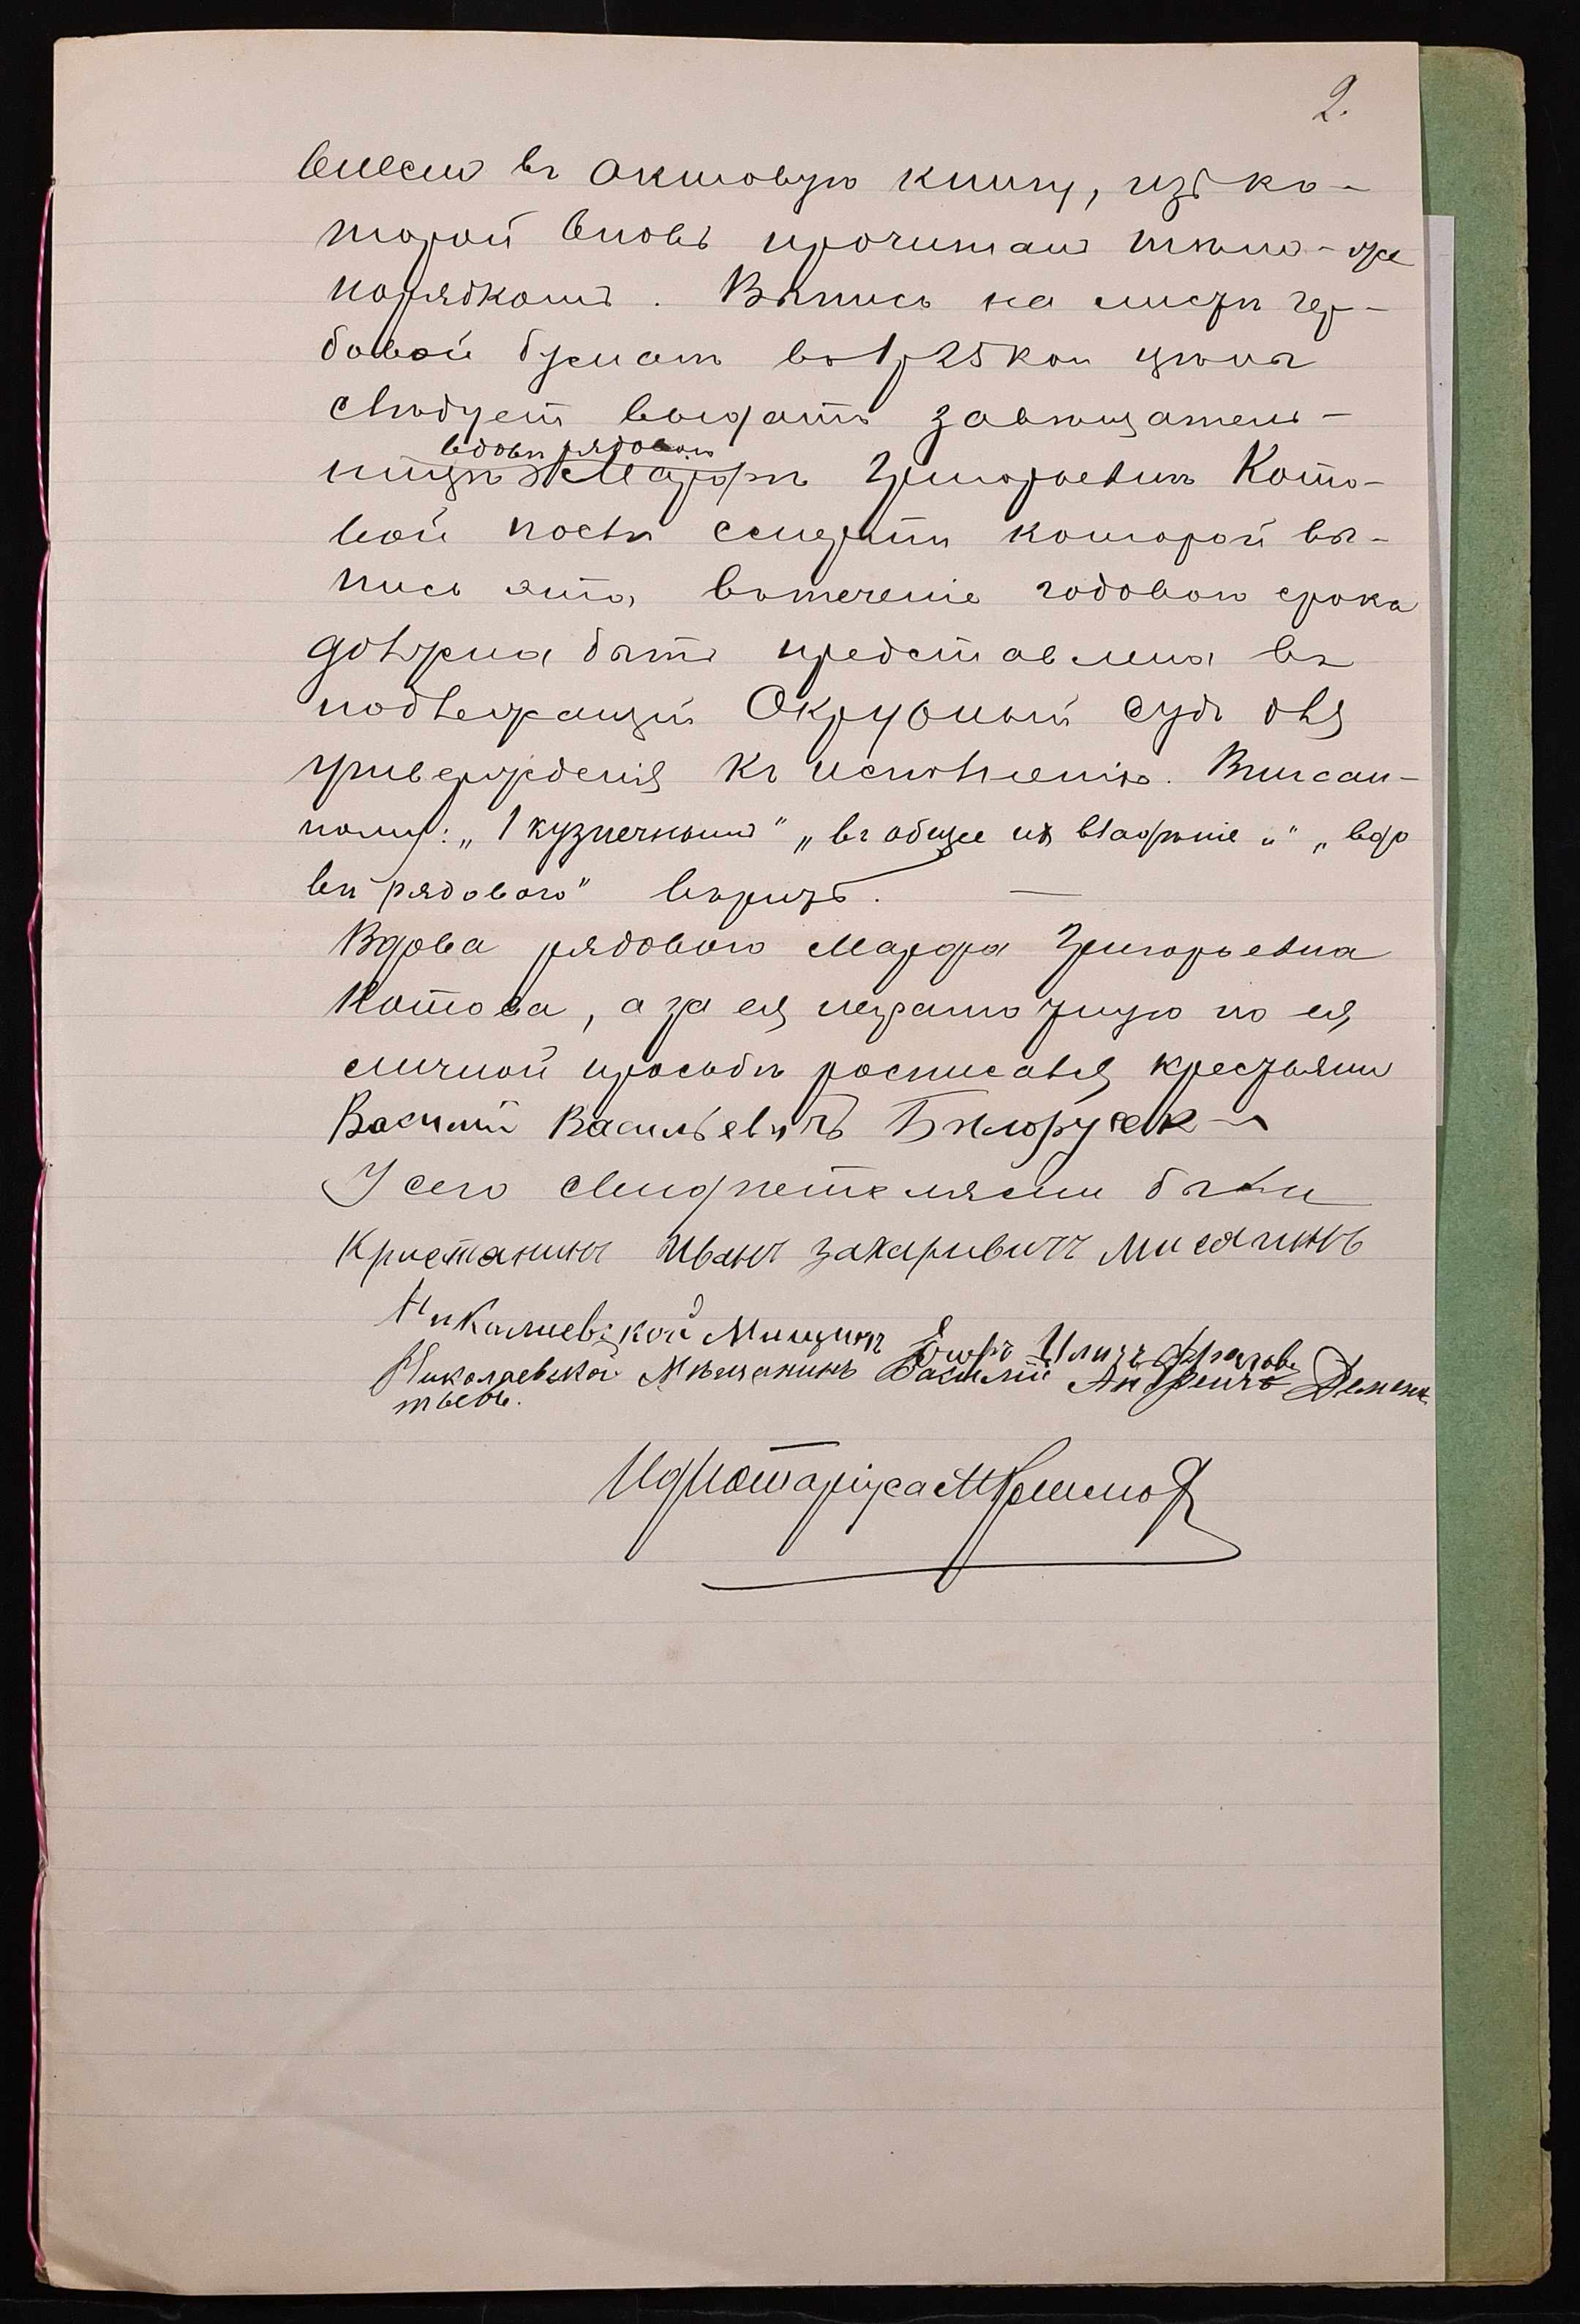 2.
внесено въ актовую книгу, изъ ко-
торой вновь прочитано тѣмъ-же
порядкомъ. Выпись на листѣ гер-
бовой бумаги въ 1 р 25 коп цѣны
слѣдуетъ выдать завѣщатель-
вдовѣ рядового
ницѣ Марфѣ Григорьевнѣ Кото-
вой послѣ смерти которой вы-
пись эта, втеченіе годового срока
должна быть представлена въ
подлежащій Окружный Судъ для
утвержденія къ исполненію. Вписан-
ному: „1 кузнечными" „въ общее их владѣніе и" „вдо
вѣ рядового" вѣрить. —
Вдова рядового Марфа Григорьевна
Котова, а за ея неграмотную по ея
личной просьбѣ росписался крестьянин
Василий Васильевичъ
У сего свидѣтелями были
Кристанинъ Иванъ Захаривичъ Мисягинъ
Никалиевской Мищинъ Егоръ Иличъ
Николаевской Мѣщанинъ Василій Андреичъ Демен
тьевъ.
Ид Нотаріуса